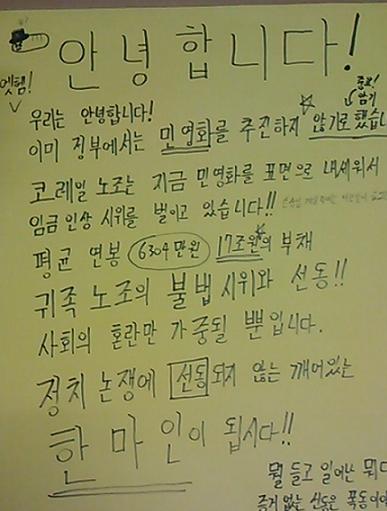 안녕합니다!
엣헴!
중요!
암기
우리는 안녕합니다!
이미 정부에서는 민영화를 추진하지 않기로 했습니
코레일 노조는 지금 민영화를 표면으로 내세워서
임금 인상 시위를 벌이고 있습니다!!
평균 연봉 6304만원 17조원의 부채
귀족 노조의 불법 시위와 선동!!
사회의 혼란만 가중될 뿐입니다.
정치 논쟁에 선동되지 않는 깨어있는
한마인이 됩시다!!
뭘 들고 일어난 뭐다
증거 없는 선동은 폭동이